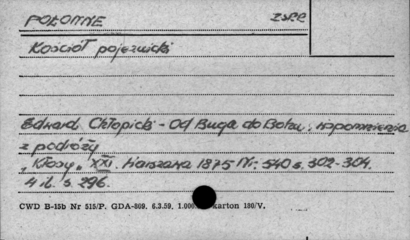 POŁOTNE ZSRR
Kościół pojezuicki
Edward Chłopicki - Od Buga do Bohu, wspomnienia
z podróży
"Kłosy" XXI. Warszawa 1875 Nr. 540 s. 302-304.
4 il. s. 296.
CWD B-15b Nr 515/P. GDA-869. 6.3.59. 1.000 karton 180/V.